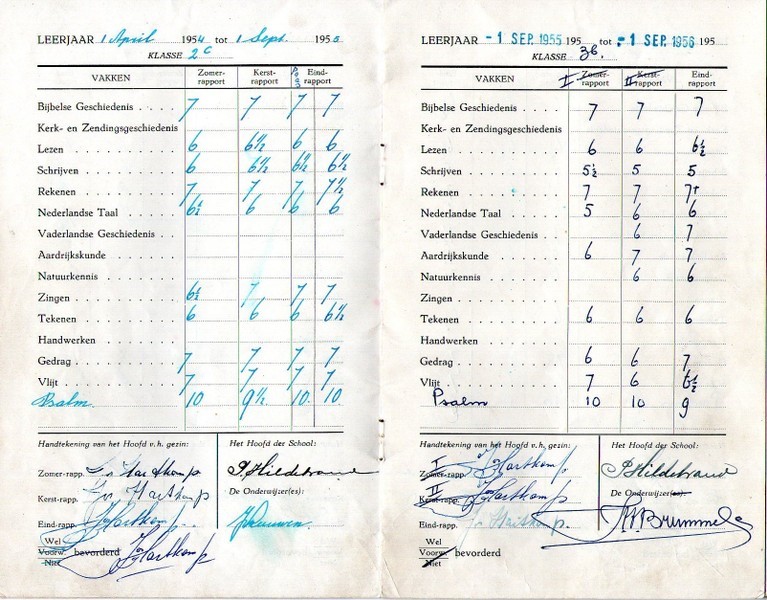 LEERJAAR 1 April 1954 tot 1 Sept. 1955
KLASSE 2c
VAKKEN Zomer-rapport Kerst-rapport Eind-rapport
Bijbelse Geschiedenis 7 7 7 7
Kerk- en Zendingsgeschiedenis
Lezen 6 6½ 6 6
Schrijven 6 6½ 6½ 6½
Rekenen 7 7 7 7½
Nederlandse Taal 6½ 6 6 6
Vaderlandse Geschiedenis
Aardrijkskunde
Natuurkennis
Zingen 6½ 7 7 7
Tekenen 6 6 6 6½
Handwerken
Gedrag 7 7 7 7
Vlijt 7 7 7 7
Psalm. 10 9½ 10. 10.
Handtekening van het Hoofd v.h. gezin: Het Hoofd der School:
Zomer-rapp. Hartkamp P. Hildebrand
Kerst-rapp. Hartkamp De Onderwijzer(es):
Eind-rapp. Hartkamp
Wel
Voorw. bevorderd Hartkamp
Niet
LEERJAAR -1 SEP. 1955 195 tot -1 SEP. 1956 195
KLASSE 3b.
VAKKEN I Zomer-rapport II Kerst-rapport Eind-rapport
Bijbelse Geschiedenis 7 7 7
Kerk- en Zendingsgeschiedenis
Lezen 6 6 6½
Schrijven 5½ 5 5
Rekenen 7 7 7+
Nederlandse Taal 5 6 6
Vaderlandse Geschiedenis 6 7
Aardrijkskunde 6 7 7
Natuurkennis 6 6
Zingen
Tekenen 6 6 6
Handwerken
Gedrag 6 6 7
Vlijt 7 6 6½
Psalm 10 10 9
Handtekening van het Hoofd v.h. gezin: Het Hoofd der School:
I
Zomer-rapp. Hartkamp P Hildebrand
II
Kerst-rapp. Hartkamp De Onderwijzer(es):
Eind-rapp. Hartkamp Brummel
Wel
Voorw. bevorderd
Niet